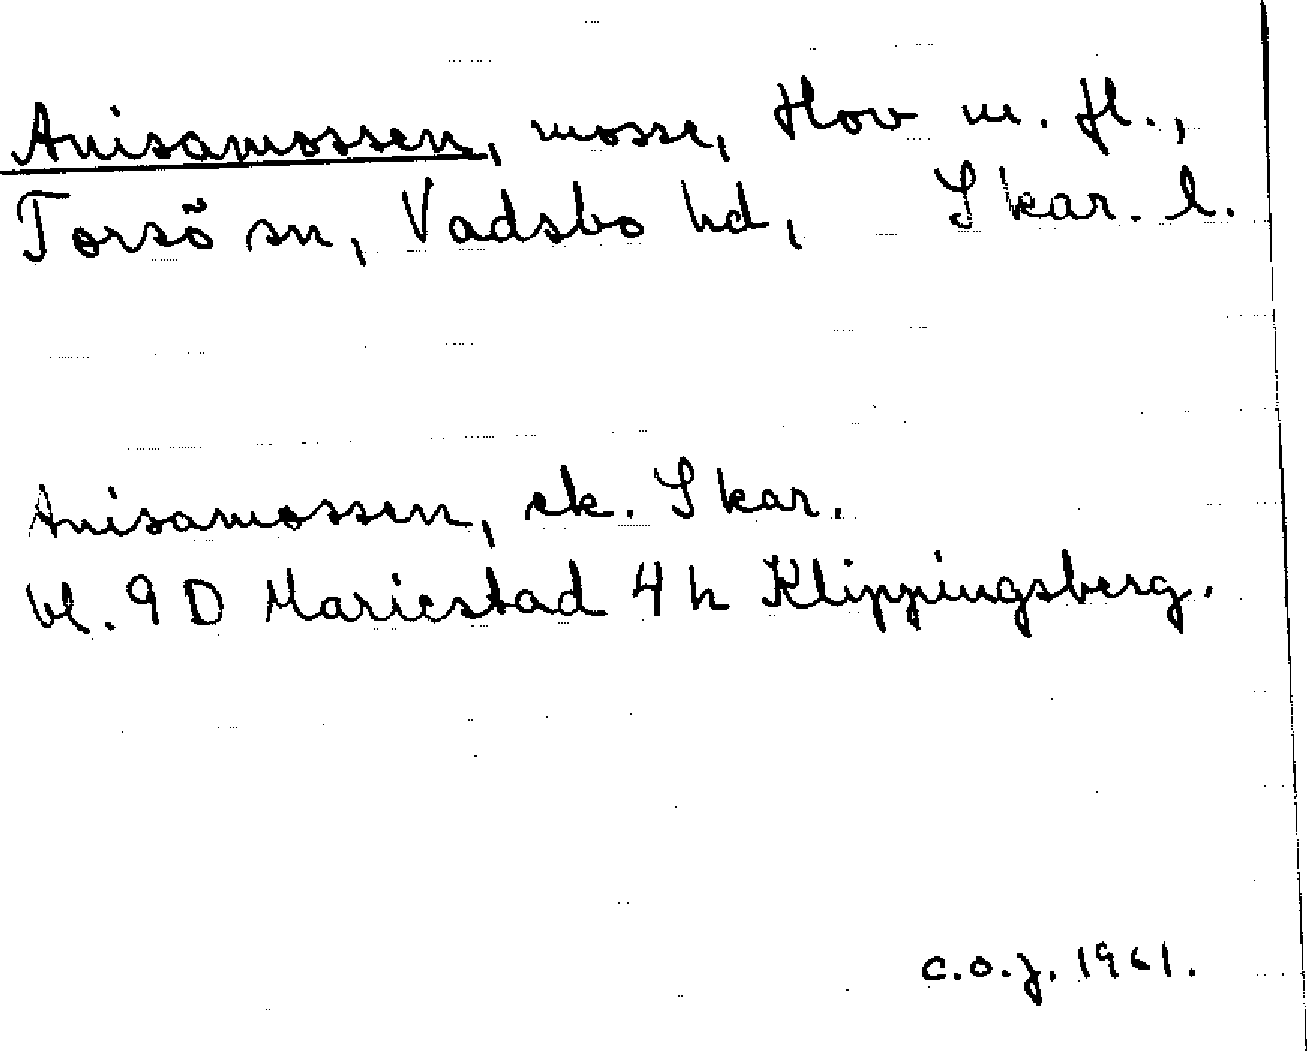 Anisamossen, mosse, Hov m. fl.,
Torsö sn, Vadsbo hd, Skar. l.
Anisamossen, ek. Skar.
bl. 9 D Mariestad 4 h Klippingsberg.
C.O.J. 1961.